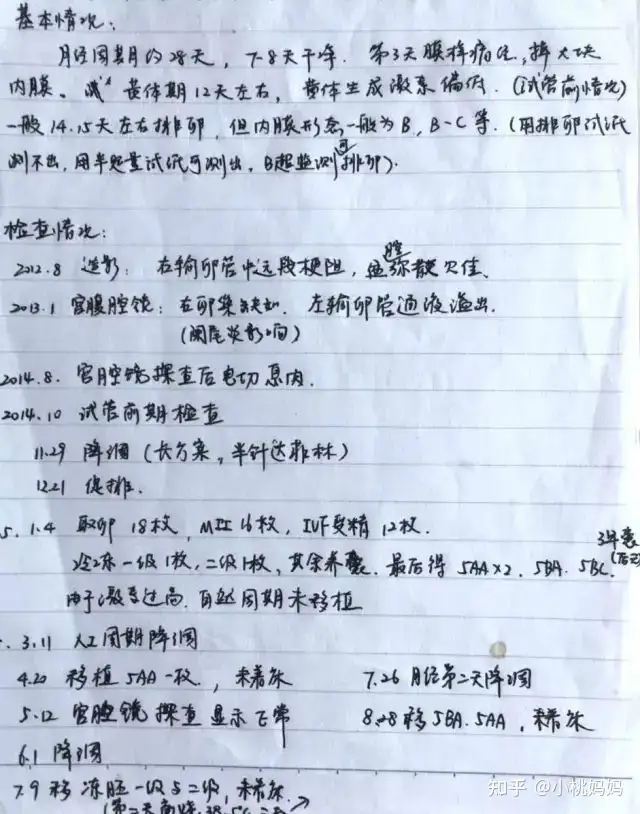 基本情况：
月经周期约28天，7-8天干净。第3天腰痛，掉大块
内膜。黄体期12天左右，黄体生成激素偏低.(试管前情况)
一般14.15天左右排卵，但内膜形态一般为B，B-C等.(用排卵试纸
测不出，用半定量试纸可测出，B超监测可排卵).
检查情况：
2012.8 造影：右输卵管中远段梗阻，弥散欠佳.
2013.1 宫腹腔镜：右卵巢缺如. 左输卵管通液溢出.
(阑尾炎影响)
2014.8. 宫腔镜探查后电切息肉.
2014.10 试管前期检查
11.29 降调(长方案，半针达菲林)
12.21 促排.
5. 1.4 取卵18枚，MII 16枚，IVF受精12枚.
冷冻一级1枚，二级1枚，其余养囊. 最后得 5AA×2. 5BA. 5BC.
3年囊
由于激素过高. 自然周期未移植
. 3.11 人工周期降调
4.20 移植5AA一枚，未着床
7.26 月经第二天降调
5.12 宫腔镜探查显示正常
8.28移5BA. 5AA，未着床
6.1 降调
7.9 移冻胚一级与二级，未着床.
(第二天高烧. 38.5℃
知乎 @小桃妈妈